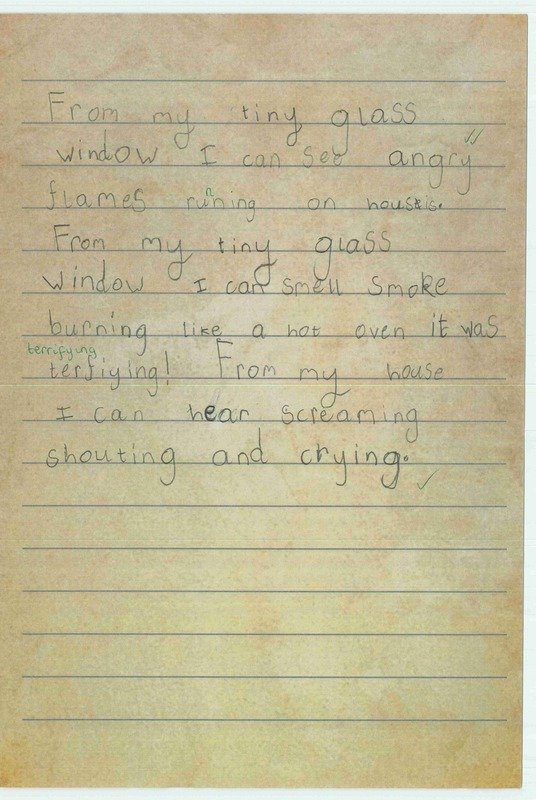 From my tiny glass
window I can see angry
flames running on housis.
From my tiny glass
window I can smell smoke
burning like a hot oven it was
terrifying
terfiying! From my house
I can hear screaming
shouting and crying.